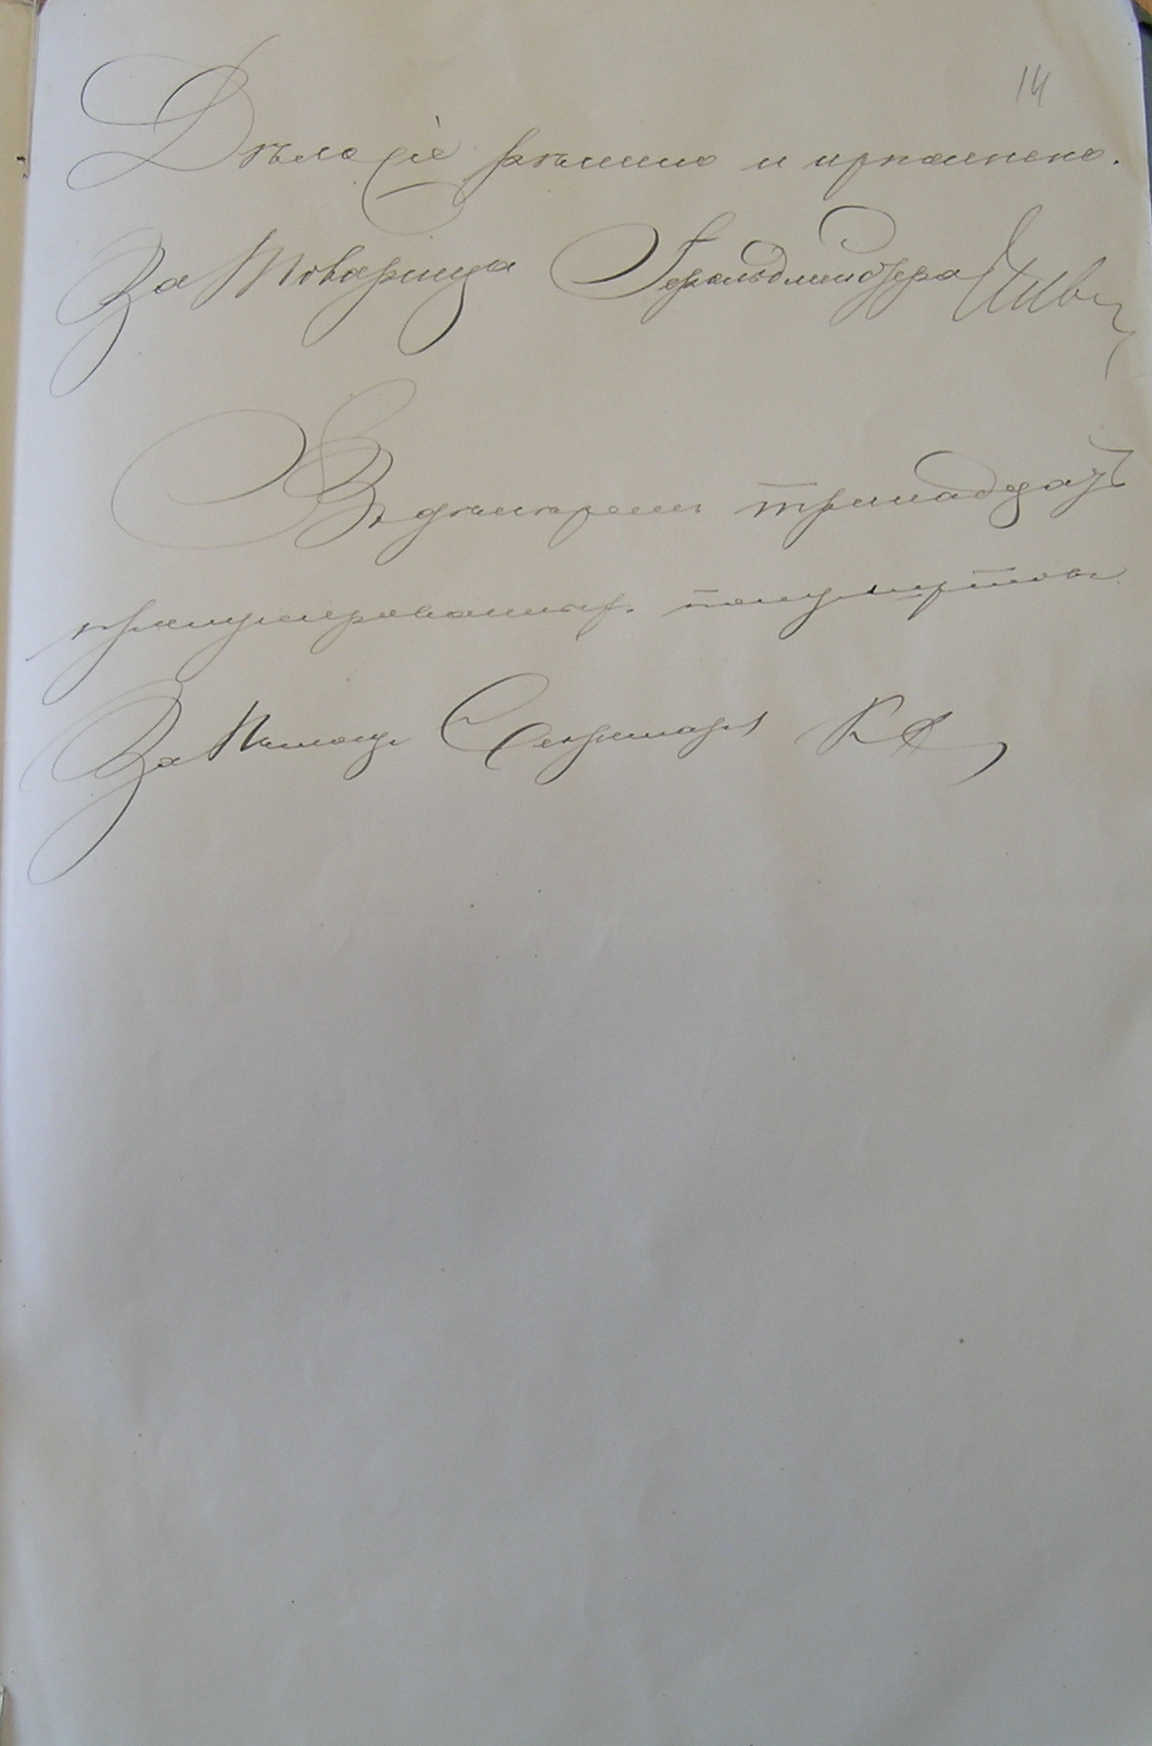 14
Дѣло сіе рѣшено и исполнено.
За Товарища Герольдмейстера
Въ дѣлѣ семъ тринадцать
пронумерованныхъ полулистовъ
За Помощ. Секретаря